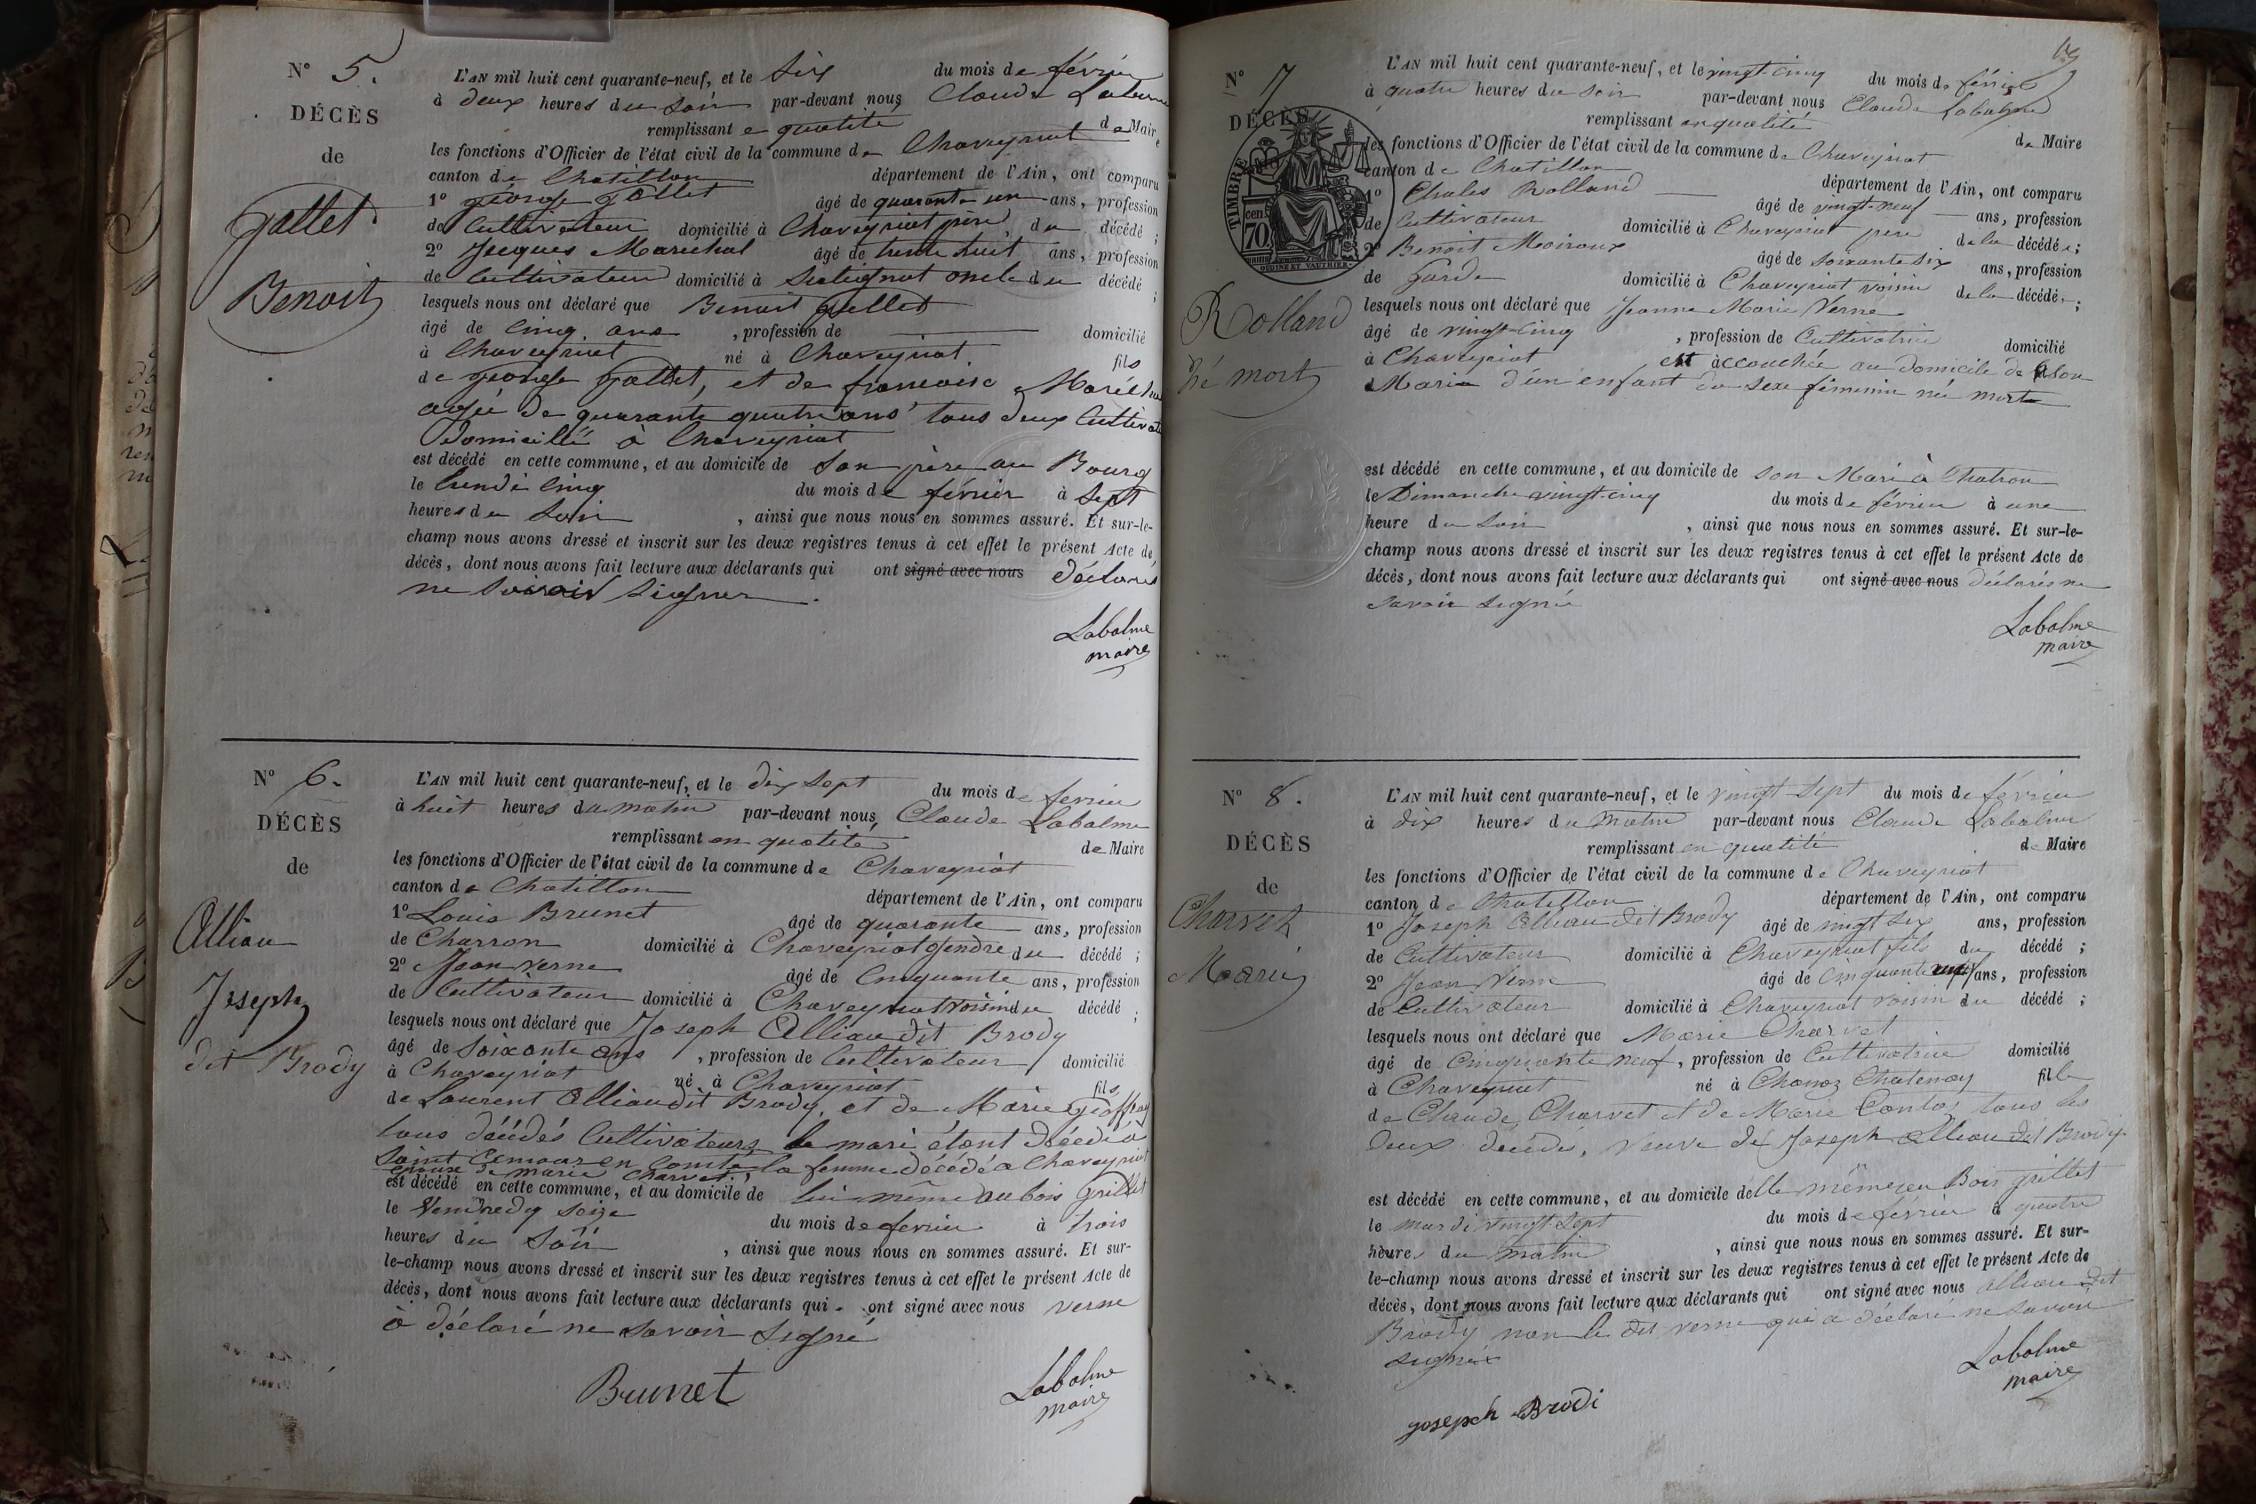 N° 5.
DÉCÈS
de
Gallet
Benoit
L'AN mil huit cent quarante-neuf, et le six du mois de février
à deux heures du soir par-devant nous Claude Labalme
remplissant e qualité de Maire
les fonctions d'Officier de l'état civil de la commune de Chaveyriat
canton de Chatillon département de l'Ain, ont comparu
1° george Gallet âgé de quarante un ans, profession
de Cultivateur domicilié à Chaveyriat père du décédé ;
2° Jacques Marechal âgé de trente huit ans, profession
de Cultivateur domicilié à oncle du décédé ;
lesquels nous ont déclaré que Benoit Gallet
âgé de cinq ans , profession de domicilié
à Chaveyriat né à Chaveyriat. fils
de george Gallet, et de francoise Maréchal
agée de quarante quatre ans tous deux Cultivateurs
Domicillié à Chaveyriat
est décédé en cette commune, et au domicile de son père au Bourg
le lundi cinq du mois de février à sept
heures du soir , ainsi que nous nous en sommes assuré. Et sur-le-
champ nous avons dressé et inscrit sur les deux registres tenus à cet effet le présent Acte de
décès, dont nous avons fait lecture aux déclarants qui ont signé avec nous déclarés
ne savoir signer.
Labalme
maire
N° 6.
DÉCÈS
de
Alliau
Joseph
dit Brody
L'AN mil huit cent quarante-neuf, et le dix sept du mois de fevrier
à huit heures du matin par-devant nous Claude Labalme
remplissant en qualité de Maire
les fonctions d'Officier de l'état civil de la commune de Chaveyriat
canton de Chatillon département de l'Ain, ont comparu
1° Louis Brunet âgé de quarante ans, profession
de Charron domicilié à Chaveyriat gendre du décédé ;
2° Jean Verne âgé de Cinquante ans, profession
de Cultivateur domicilié à Chaveyriat voisin du décédé ;
lesquels nous ont déclaré que Joseph Alliau dit Brody
âgé de soixante ans , profession de Cultivateur domicilié
à Chaveyriat né à Chaveyriat fils
de Laurent Alliau dit Brody, et de Marie geoffray
tous décédés Cultivateurs le mari étant décédé à
Saint en Comté la femme décédé à Chaveyriat
epoux de marie Charvet
est décédé en cette commune, et au domicile de lui même au bois grillet
le Vendredy seize du mois de fevrier à trois
heures du soir , ainsi que nous nous en sommes assuré. Et sur-
le-champ nous avons dressé et inscrit sur les deux registres tenus à cet effet le présent Acte de
décès, dont nous avons fait lecture aux déclarants qui ont signé avec nous verne
à déclaré ne savoir signé
Brunet
Labalme
maire
N° 7
DÉCÈS
TIMBRE
70 cen
Rolland
né mort
L'AN mil huit cent quarante-neuf, et le vingt-cinq du mois de février
à quatre heures du soir par-devant nous Claude Labalme
remplissant en qualité de Maire
les fonctions d'Officier de l'état civil de la commune de Chaveyriat
canton de Chatillon département de l'Ain, ont comparu
1° Charles Rolland âgé de vingt-neuf ans, profession
de Cultivateur domicilié à Chaveyriat père de la décédée ;
2° Benoit Moiroux âgé de soixante six ans, profession
de Garde domicilié à Chaveyriat voisin de la décédée ;
lesquels nous ont déclaré que Jeanne Marie Verne
âgé de vingt-cinq , profession de Cultivatrice domicilié
à Chaveyriat est accouchée au domicile de son
Marie d'un enfant du sexe féminin né morte
est décédé en cette commune, et au domicile de son Mari à Chatron
le Dimanche vingt-cinq du mois de février à une
heure du soir , ainsi que nous nous en sommes assuré. Et sur-le-
champ nous avons dressé et inscrit sur les deux registres tenus à cet effet le présent Acte de
décès, dont nous avons fait lecture aux déclarants qui ont signé avec nous déclarés ne
savoir signé
Labalme
maire
N° 8.
DÉCÈS
de
Charvet
Marie
L'AN mil huit cent quarante-neuf, et le vingt sept du mois de février
à dix heures du matin par-devant nous Claude Labalme
remplissant en qualité de Maire
les fonctions d'Officier de l'état civil de la commune de Chaveyriat
canton de Chatillon département de l'Ain, ont comparu
1° Joseph Alliau dit Brody âgé de vingt six ans, profession
de Cultivateur domicilié à Chaveyriat fils du décédé ;
2° Jean Verne âgé de Cinquante ans, profession
de Cultivateur domicilié à Chaveyriat voisin du décédé ;
lesquels nous ont déclaré que Marie Charvet
âgé de Cinquante neuf , profession de Cultivatrice domicilié
à Chaveyriat né à Chanoz Chatenay fille
de Claude Charvet et de Marie tous les
deux décédé, veuve de Joseph Alliau dit Brody
est décédé en cette commune, et au domicile delle même en Bois grillet
le mardi vingt sept du mois de février à quatre
heures du matin , ainsi que nous nous en sommes assuré. Et sur-
le-champ nous avons dressé et inscrit sur les deux registres tenus à cet effet le présent Acte de
décès, dont nous avons fait lecture aux déclarants qui ont signé avec nous Alliau dit
Brody non le dit verne qui a déclaré ne savoir
signér
Labalme
maire
joseph Brodi